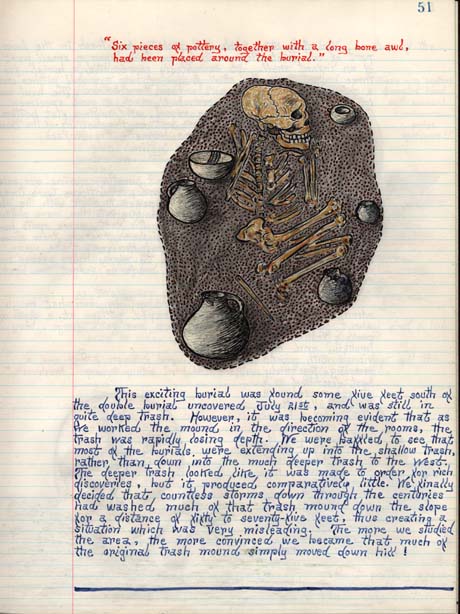 51
"Six pieces of pottery, together with a long bone awl,
had been placed around the burial."
This exciting burial was found some five feet south of
the double burial uncovered July 21st, and was still in
quite deep trash. However, it was becoming evident that as
we worked the mound in the direction of the rooms, the
trash was rapidly losing depth. We were baffled to see that
most of the burials were extending up into the shallow trash,
rather than down into the much deeper trash to the West.
The deeper trash looked like it was made to order for rich
discoveries, but it produced comparatively little. We finally
decided that countless storms down through the centuries
had washed much of that trash mound down the slope
for a distance of fifty to seventy-five feet, thus creating a
situation which was very misleading. The more we studied
the area, the more convinced we became that much of
the original trash mound simply moved down hill!